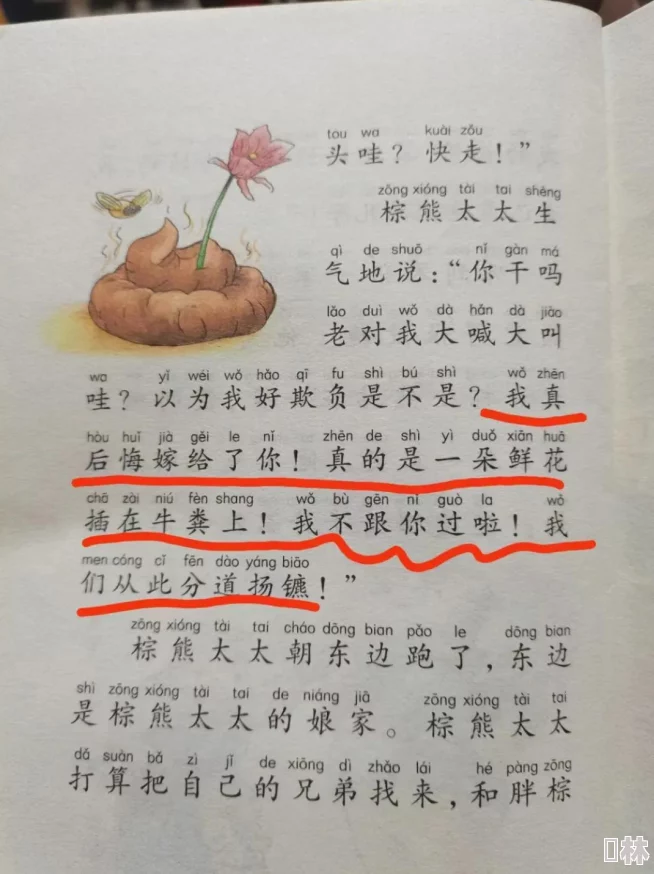 tou wa kuài zǒu
头哇？快走！”
zōng xióng tài tai shēng
棕熊太太生
qì de shuō nǐ gàn má
气地说：“你干吗
lǎo duì wǒ dà hǎn dà jiào
老对我大喊大叫
wa yǐ wéi wǒ hǎo qī fu shì bú shì wǒ zhēn
哇？以为我好欺负是不是？我真
hòu huǐ jià gěi le nǐ zhēn de shì yì duǒ xiān huā
后悔嫁给了你！真的是一朵鲜花
chā zài niú fèn shang wǒ bù gēn nǐ guò la wǒ
插在牛粪上！我不跟你过啦！我
men cóng cǐ fēn dào yáng biāo
们从此分道扬镳！”
zōng xióng tài tai cháo dōng bian pǎo le dōng bian
棕熊太太朝东边跑了，东边
shì zōng xióng tài tai de niáng jiā zōng xióng tài tai
是棕熊太太的娘家。棕熊太太
dǎ suàn bǎ zì jǐ de xiōng dì zhǎo lái hé pàng zōng
打算把自己的兄弟找来，和胖棕
林